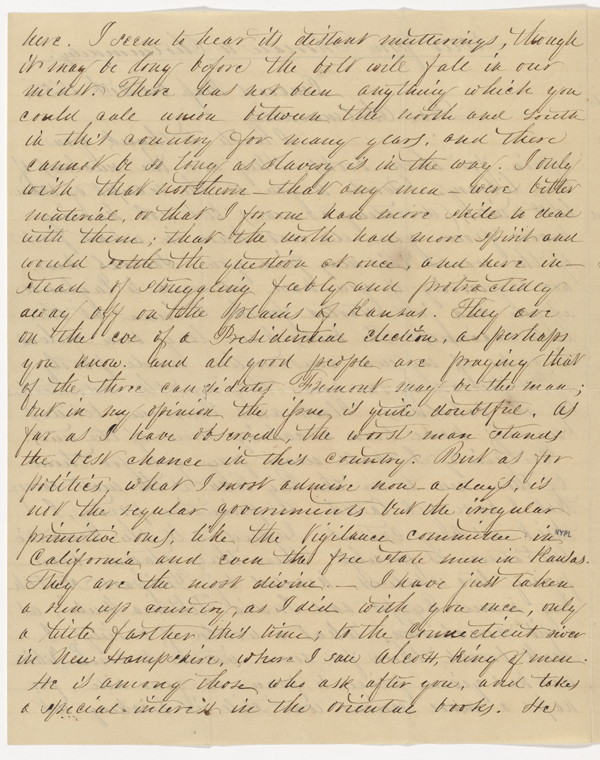 here. I seem to hear its distant mutterings, though
it may be long before the bolt will fall in our
midst. There has not been anything which you
could cale union between the north and South
in this country for many years, and there
cannot be so long as slavery is in the way. I only
wish that northern — that any men — were better
material, or that I for one had more skile to deal
with them; that the north had more spirit and
would settle the question at once, and here in-
stead of struggling feebly and protractedly
away off on the plains of Kansas. They are
on the eve of a Presidential election, as perhaps
you know. and all good people are praying that
of the three candidates Fremont may be the man;
but in my opinion the issue is quite doubtful. As
far as I have observed, the worst man stands
the best chance in this country. But as for
politics, what I most admire now-a days, is
not the regular governments but the irregular
primitive ones, like the Vigilance committee in
NYPL
California and even the free state men in Kansas.
They are the most divine. — I have just taken
a run up country, as I did with you once, only
a little farther this time; to the Connecticut river
in New Hampshire, where I saw Alcott, King of men.
He is among those who ask after you, and takes
a special interest in the oriental books. He